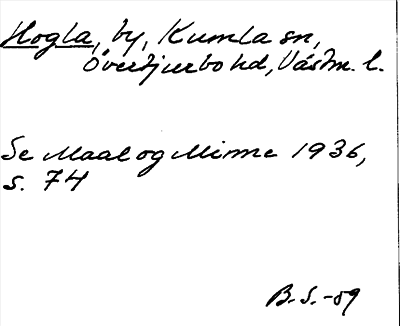 Hogla, by, Kumla sn,
Övertjurbo hd, Västm. l.
Se Maal og Minne 1936,
s. 74
B. S. -59